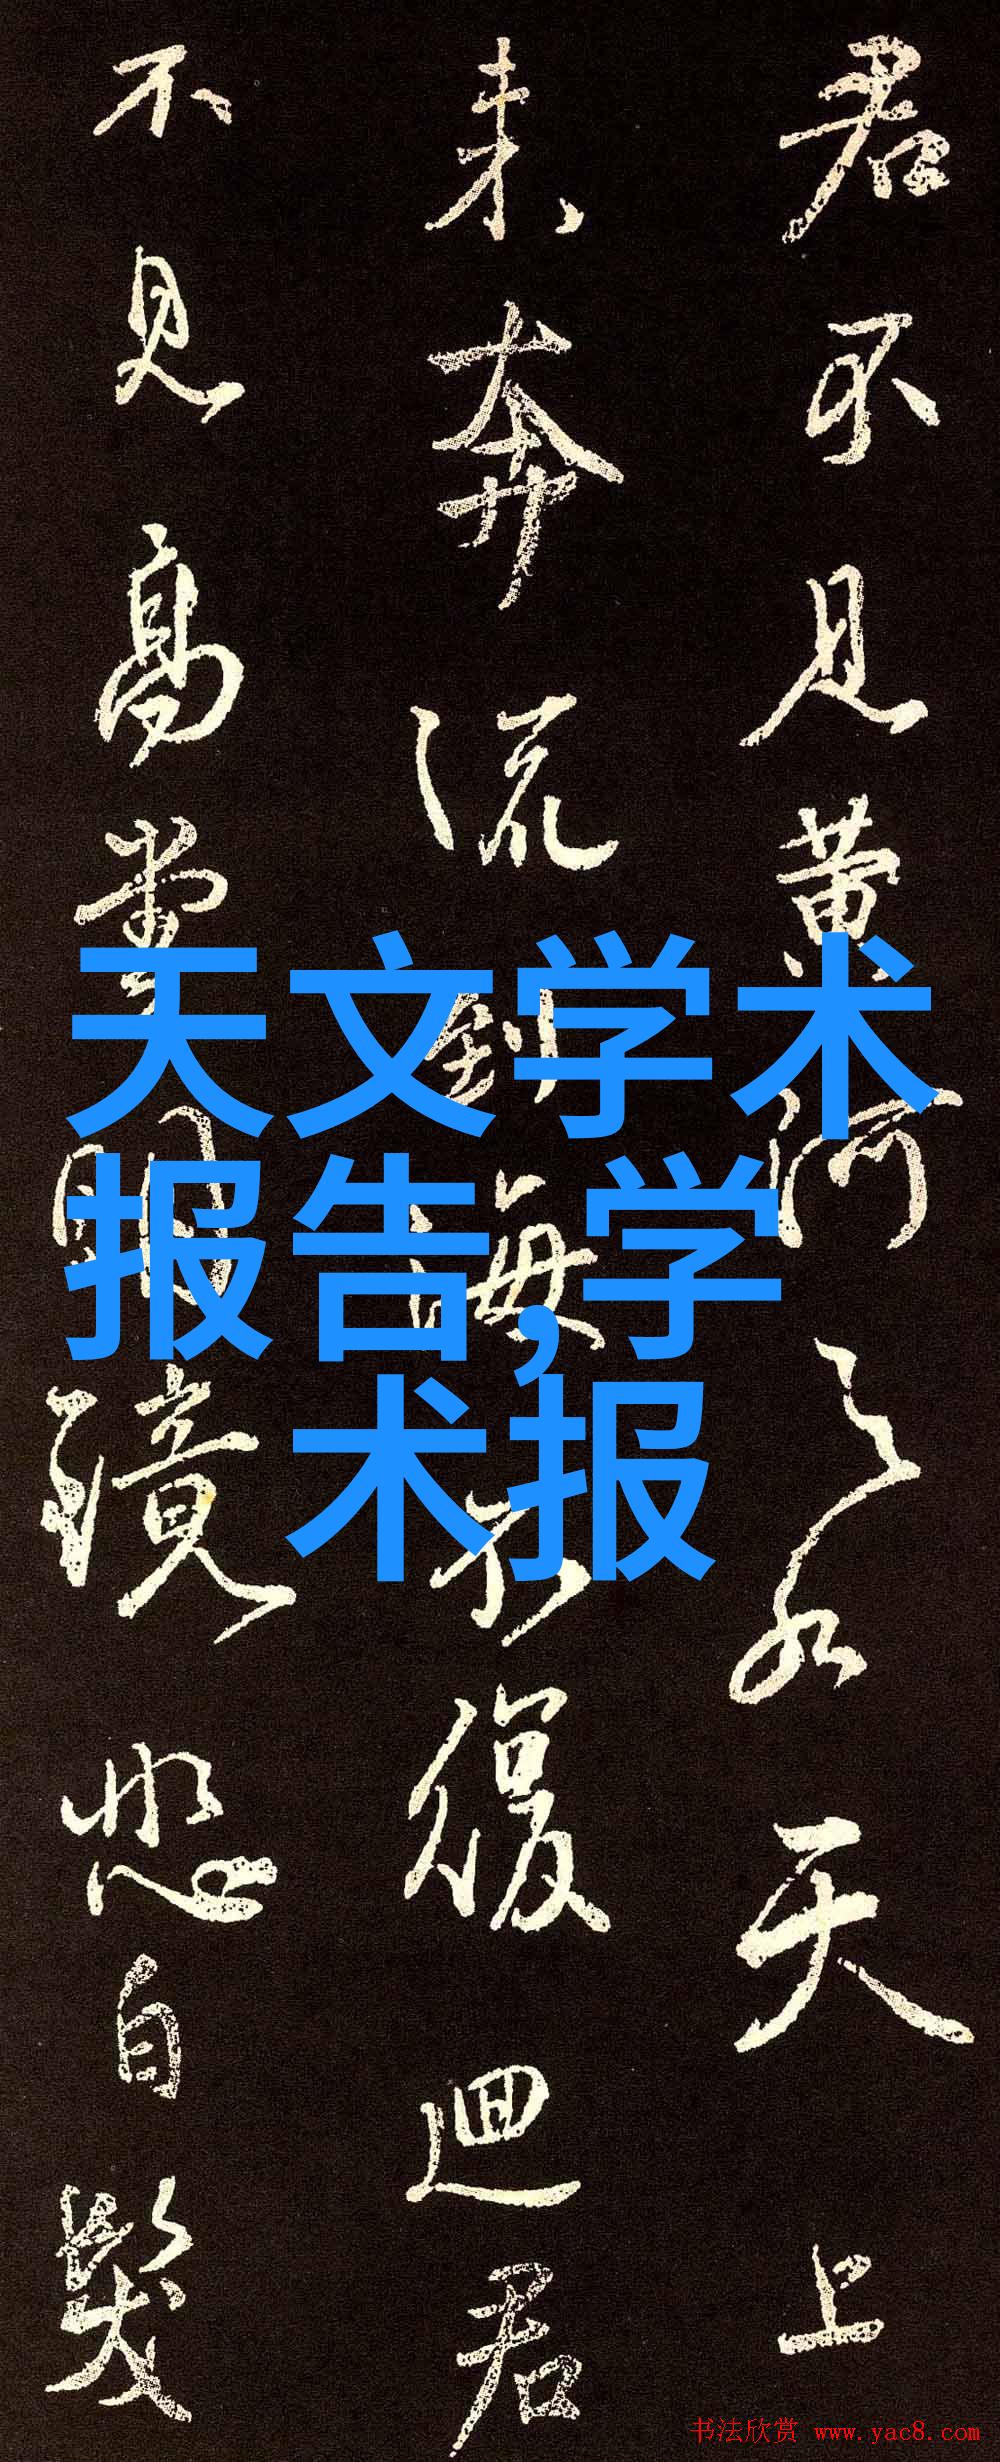 君不見黄河之水天上
来奔流到海不復迴君
不見高堂明鏡悲白髮
天文学术
报告,学
术报
书法欣赏 www.yac8.com